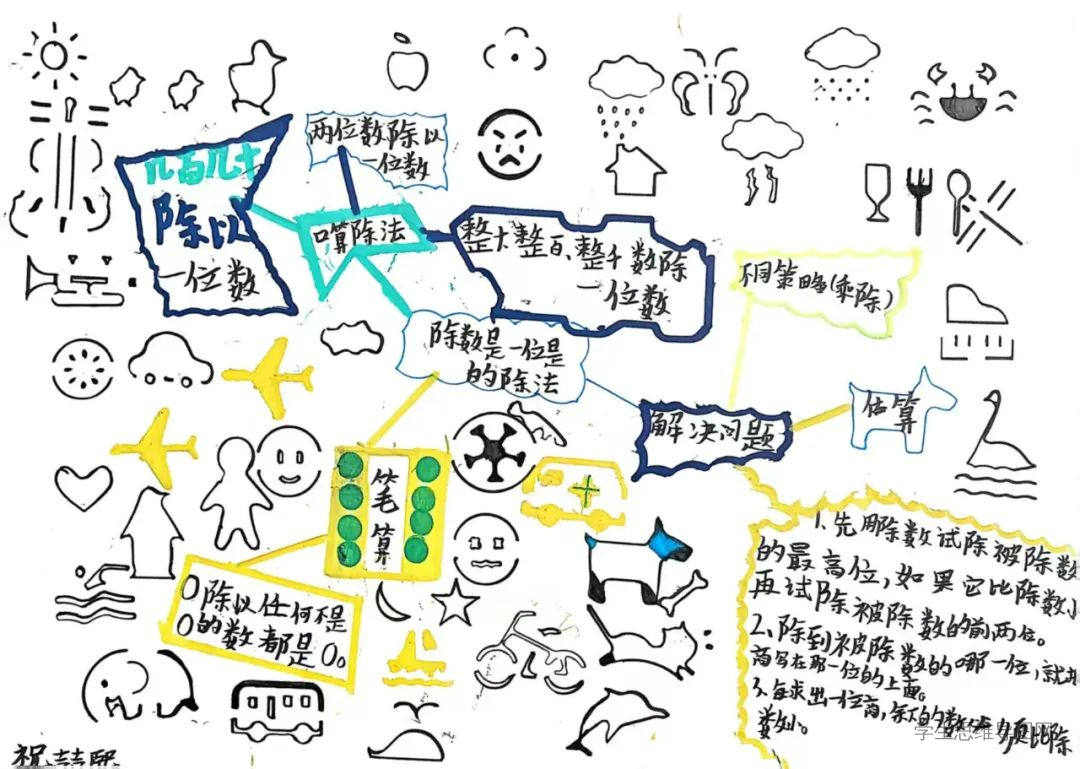 几百几十
除以
一位数
两位数除以
一位数
口算除法
整十整百、整千数除
一位数
不同策略(乘除)
除数是一位是
的除法
解决问题
估算
笔
算
0除以任何不是
0的数都是0。
1.先用除数试除被除数
的最高位,如果它比除数小
再试除被除数的前两位。
2、除到被除数的哪一位,就把
商写在那一位的上面。
3、每求出一位商,余下的数必须比除
数小。
学生思维导图网